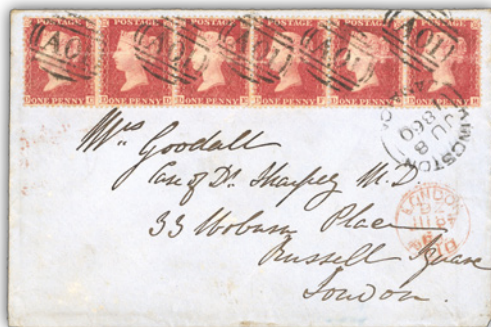 POSTAGE POSTAGE POSTAGE POSTAGE POSTAGE POSTAGE
A01 A01 A01 A01 A01
ONE PENNY ONE PENNY ONE PENNY ONE PENNY ONE PENNY ONE PENNY
KINGSTON
JU 8
1860
Mrs Goodall
Care of Dr. Sharpey M.D
33 Woburn Place
Russell Square
London.
LONDON